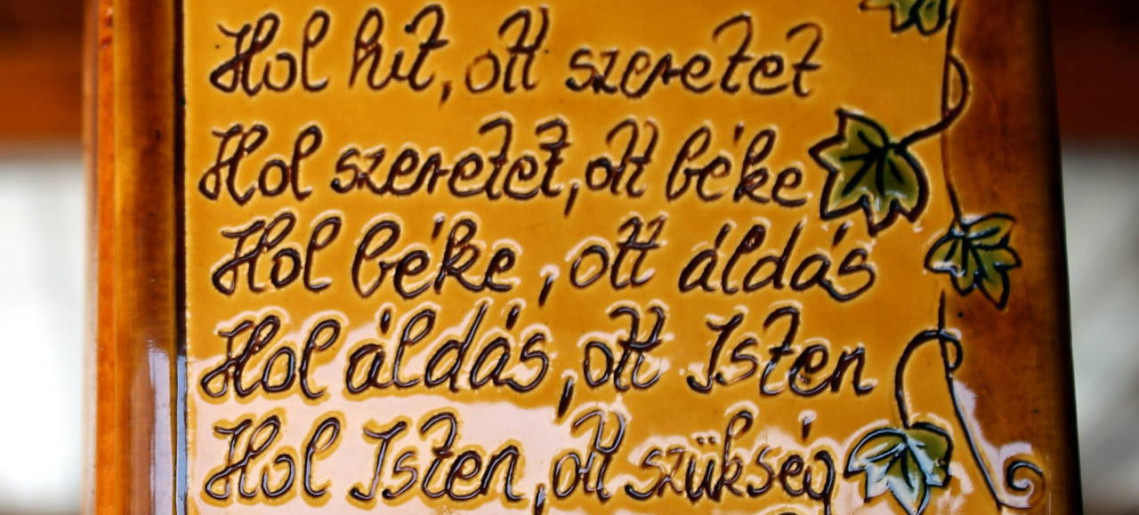 Hol hit, ott szeretet
Hol szeretet, ott béke
Hol béke, ott áldás
Hol áldás, ott Isten
Hol Isten, ott szükség